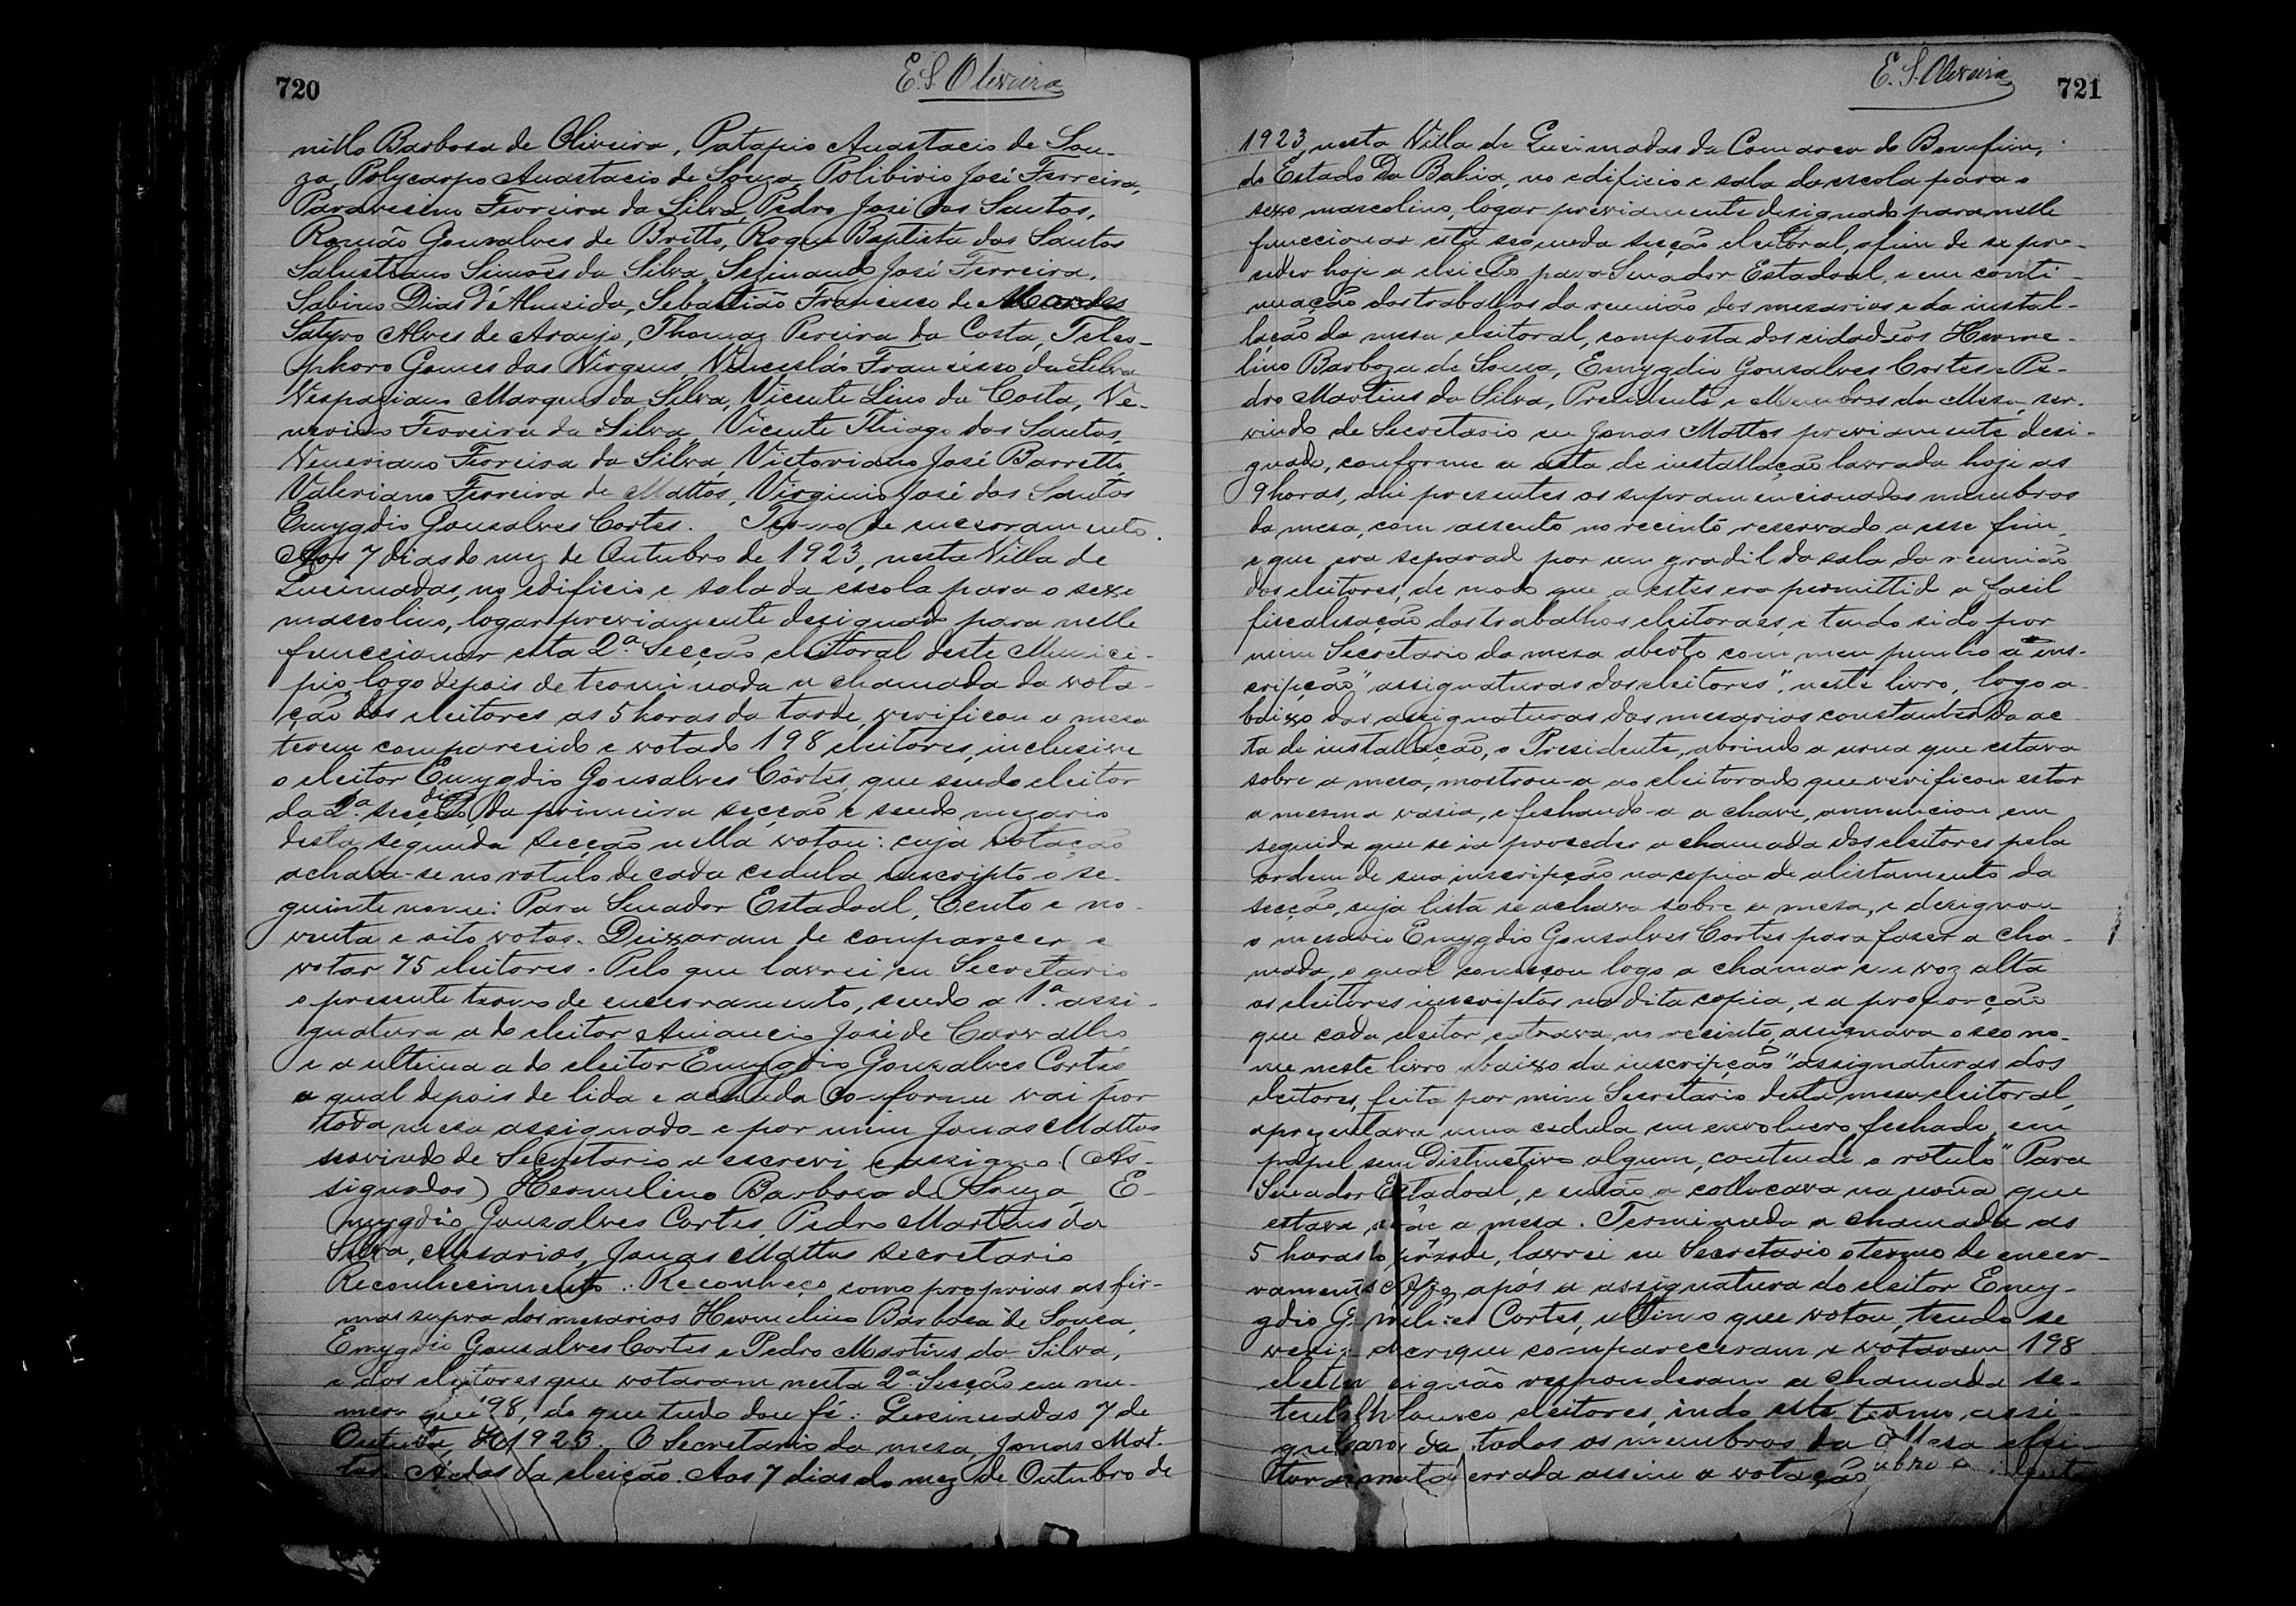 720
E. S. Oliveira
nillo Barbosa de Oliveira, Patapio Anastacio de Sou-
za, Polycarpo Anastacio de Souza, Polibivio José Ferreira,
Ferreira da Silva, Pedro José dos Santos,
Romão Gonsalves de Britto, Roque Baptista dos Santos
Salustiano Simões da Silva, Sezinando José Ferreira,
Sabino Dias d'Almeida, Sebastião Francisco de
Satyro Alves de Araujo, Thomaz Pereira da Costa, Teles-
phoro Gomes das Virgens, Venceslão Francisco da Silva
Vespaziano Marques da Silva, Vicente Lino da Costa, Ve-
nerino Ferreira da Silva, Vicente Thiago dos Santos,
Veneriano Ferreira da Silva, Victoriano José Barretto,
Valeriano Ferreira de Mattos, Virginio José dos Santos
Emygdio Gonsalves Cortes. Termo de encerramento.
Aos 7 dias do mez de Outubro de 1923, nesta Villa de
Queimadas, no edificio e sala da escola para o sexo
masculino, logar previamente designado para nelle
funccionar esta 2ª Secção eleitoral deste Munici-
pio, logo depois de terminada a chamada da vota-
ção dos eleitores as 5 horas da tarde, verificou a mesa
terem comparecido e votado 198 eleitores, inclusive
o eleitor Emygdio Gonsalves Côrtes, que sendo eleitor
da 2ª secção, digo, da primeira secção e sendo mezario
desta segunda secção nella votou: cuja votação
achava-se no rotulo de cada cedula inscripto o se-
guinte nome: Para Senador Estadoal, Cento e no-
venta e oito votos. Deixaram de comparecer e
votar 75 eleitores. Pelo que lavrei eu Secretario
o presente termo de encerramento, sendo a 1ª assi-
gnatura a do eleitor Amancio José de Carvalho
e a ultima a do eleitor Emygdio Gonzalves Cortes
a qual depois de lida e achada conforme vai por
toda mesa assignado e por mim Jonas Mattos
servindo de Secretario a escrevi e assigno (As-
signados) Hermelino Barbosa de Souza, E-
mygdio Gonzalves Cortes, Pedro Martins da
Silva, Mesarios, Jonas Mattos secretario
Reconhecimento: Reconheço como proprias as fir-
mas supra dos mesarios Hermelino Barbosa de Souza,
Emygdio Gonsalves Cortes e Pedro Martins da Silva,
e dos eleitores que votaram nesta 2ª Secção em nu-
mero que 198, do que tudo dou fé. Queimadas 7 de
Outubro de 1923. O Secretario da mesa Jonas Mat-
tos. Actas da eleição. Aos 7 dias do mez de Outubro de
E. S. Oliveira
721
1923, nesta Villa de Queimadas da Comarca do Bomfim,
do Estado Da Bahia, no edificio e sala da escola para o
sexo masculino, logar previamente designado para nelle
funccionar esta segunda secção eleitoral, afim de se pro-
ceder hoje a eleição para Senador Estadoal, e em conti-
nuação dos trabalhos da reunião dos mesarios e da instal-
lação da mesa eleitoral, composta dos cidadãos Herme-
lino Barboza de Sousa, Emygdio Gonsalves Cortes e Pe-
dro Martins da Silva, Presidente e Membros da Mesa, ser-
vindo de Secretario eu Jonas Mattos previamente desi-
gnado, conforme a acta de installação lavrada hoje as
9 horas, ahi presentes os supramencionados membros
da mesa, com assento no recinto reservado a esse fim,
e que era separad por um gradil da sala da reunião
dos eleitores, de modo que a estes era permittido a facil
fiscalisação dos trabalhos eleitoraes, e tendo sido por
mim Secretario da mesa aberto com meu punho a ins-
cripção "assignaturas dos eleitores", neste livro, logo a-
baixo das assignaturas dos mesarios constantes da ac-
ta de installação, o Presidente, abrindo a urna que estava
sobre a mesa, mostrou-a ao eleitorado que verificou estar
a mesma vasia, e fechando-a a chave, annunciou em
seguida que se ia proceder a chamada dos eleitores pela
ordem de sua inscripção na copia de alistamento da
secção, cuja lista se achava sobre a mesa, e designou
o mesario Emygdio Gonsalves Cortes para faser a cha-
mada, o qual começou logo a chamar em voz alta
os eleitores inscriptos na dita copia, e a proporção
que cada eleitor entrava no recinto, assignava o seo no-
me neste livro abaixo da inscripção "assignaturas dos
eleitores, feita por mim Secretario desta mesa eleitoral,
aprezentava uma cedula em envolucro fechado, em
papel sem distinctivo algum, contendo o rotulo "Para
Senador Estadoal, e então a collocava na urna que
estava a mesa. Terminada a chamada as
5 horas da tarde, lavrei eu Secretario o termo de encer-
ramento após a assignatura do eleitor Emy-
gdio Cortes, ultimo que votou, tendo se
que compareceram e votaram 198
não responderam a chamada se-
eleitores, indo este termo, assi-
da todos os membros da Mesa elei-
errada assim a votação